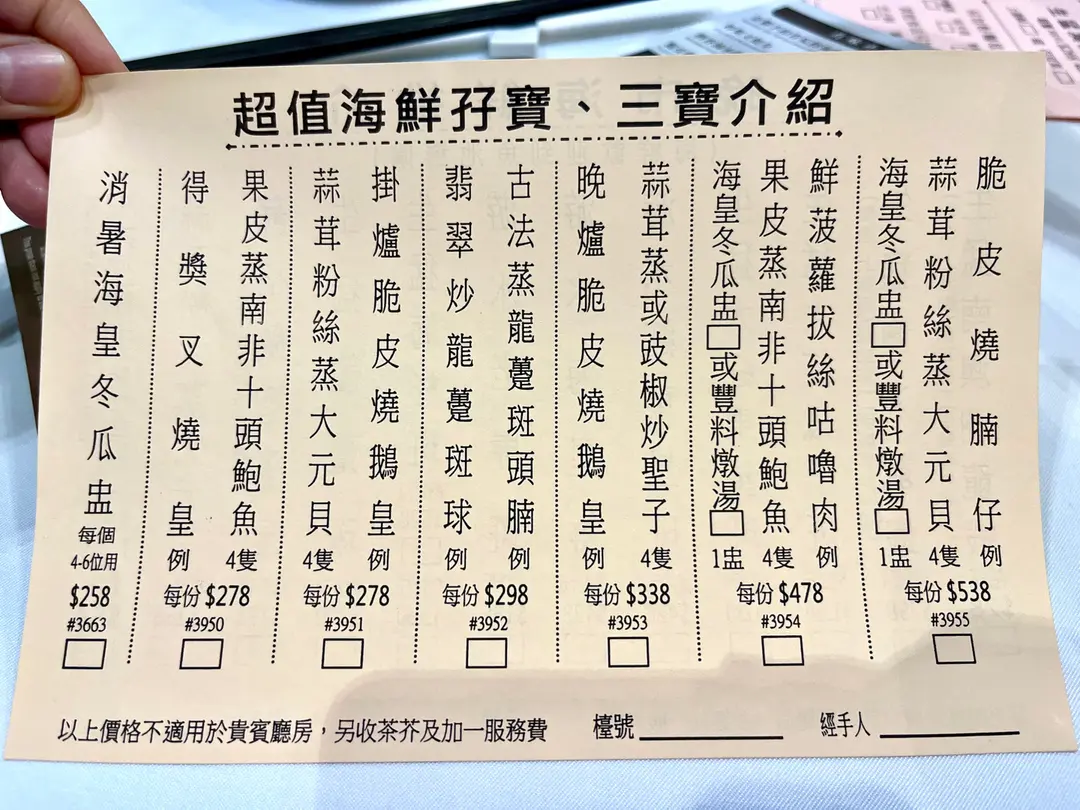 超值海鮮孖寶、三寶介紹
脆皮燒腩仔 例
蒜茸粉絲蒸大元貝 4隻
海皇冬瓜盅□或豐料燉湯□ 1盅
每份 $538
#3955
鮮菠蘿拔絲咕嚕肉 例
果皮蒸南非十頭鮑魚 4隻
海皇冬瓜盅□或豐料燉湯□ 1盅
每份 $478
#3954
蒜茸蒸或豉椒炒聖子 4隻
晚爐脆皮燒鵝皇 例
每份 $338
#3953
古法蒸龍躉斑頭腩 例
翡翠炒龍躉斑球 例
每份 $298
#3952
掛爐脆皮燒鵝皇 例
蒜茸粉絲蒸大元貝 4隻
每份 $278
#3951
果皮蒸南非十頭鮑魚 4隻
得獎叉燒皇 例
每份 $278
#3950
消暑海皇冬瓜盅
每個
4-6位用
$258
#3663
以上價格不適用於貴賓廳房，另收茶芥及加一服務費
檯號
經手人